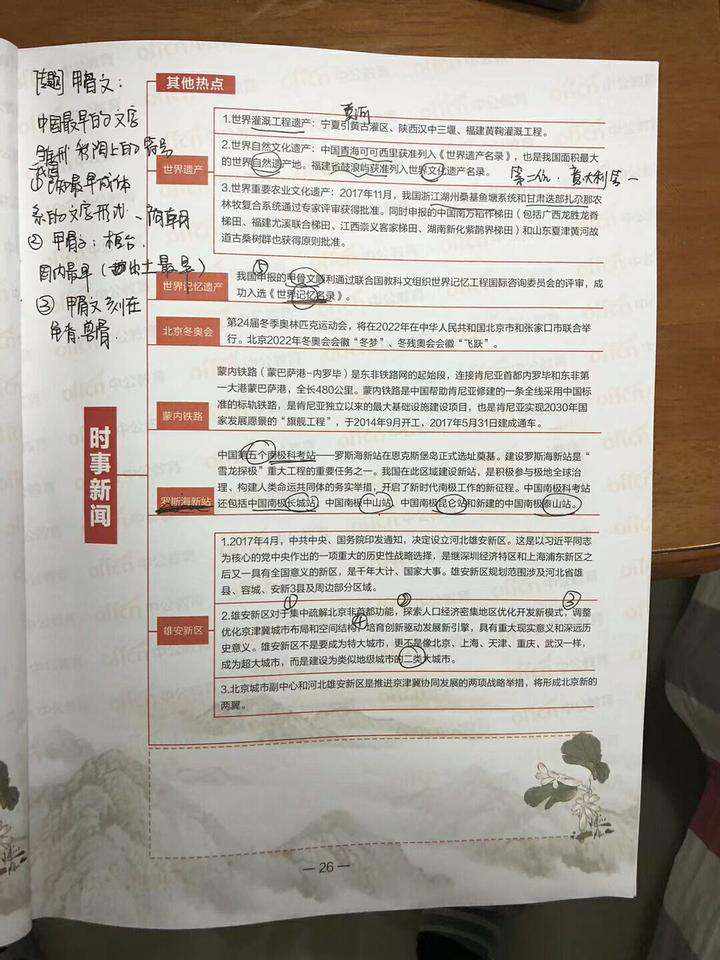 其他热点
甲骨文：
中国最早的文字
彩陶上的符号
①已知最早成体
系的文字形式、
②甲骨文：
国内最早（出土最早）
③甲骨文刻在
龟背.兽骨.
时事新闻
世界遗产
黄河
1.世界灌溉工程遗产：宁夏引黄古灌区、陕西汉中三堰、福建黄鞠灌溉工程。
2.世界自然文化遗产：中国青海可可西里获准列入《世界遗产名录》，也是我国面积最大
的世界自然遗产地。福建省鼓浪屿获准列入世界文化遗产名录。
第二位.意大利第一
3.世界重要农业文化遗产：2017年11月，我国浙江湖州桑基鱼塘系统和甘肃迭部扎尕那农
林牧复合系统通过专家评审获得批准。同时申报的中国南方稻作梯田（包括广西龙胜龙脊
梯田、福建尤溪联合梯田、江西崇义客家梯田、湖南新化紫鹊界梯田）和山东夏津黄河故
道古桑树群也获得原则批准。
世界记忆遗产
⑤
我国申报的甲骨文顺利通过联合国教科文组织世界记忆工程国际咨询委员会的评审，成
功入选《世界记忆名录》。
北京冬奥会
第24届冬季奥林匹克运动会，将在2022年在中华人民共和国北京市和张家口市联合举
行。北京2022年冬奥会会徽“冬梦”、冬残奥会会徽“飞跃”。
蒙内铁路
蒙内铁路（蒙巴萨港-内罗毕）是东非铁路网的起始段，连接肯尼亚首都内罗毕和东非第
一大港蒙巴萨港，全长480公里。蒙内铁路是中国帮助肯尼亚修建的一条全线采用中国标
准的标轨铁路，是肯尼亚独立以来的最大基础设施建设项目，也是肯尼亚实现2030年国
家发展愿景的“旗舰工程”，于2014年9月开工，2017年5月31日建成通车。
罗斯海新站
中国第五个南极科考站——罗斯海新站在恩克斯堡岛正式选址奠基。建设罗斯海新站是“
雪龙探极”重大工程的重要任务之一。我国在此区域建设新站，是积极参与极地全球治
理、构建人类命运共同体的务实举措，开启了新时代南极工作的新征程。中国南极科考站
还包括中国南极长城站、中国南极中山站、中国南极昆仑站和新建的中国南极泰山站。
雄安新区
1.2017年4月，中共中央、国务院印发通知，决定设立河北雄安新区。这是以习近平同志
为核心的党中央作出的一项重大的历史性战略选择，是继深圳经济特区和上海浦东新区之
后又一具有全国意义的新区，是千年大计、国家大事。雄安新区规划范围涉及河北省雄
县、容城、安新3县及周边部分区域。
① ② ③
2.雄安新区对于集中疏解北京非首都功能，探索人口经济密集地区优化开发新模式，调整
优化京津冀城市布局和空间结构，④培育创新驱动发展新引擎，具有重大现实意义和深远历
史意义。雄安新区不是要成为特大城市，更不是像北京、上海、天津、重庆、武汉一样，
成为超大城市，而是建设为类似地级城市的二类大城市。
3.北京城市副中心和河北雄安新区是推进京津冀协同发展的两项战略举措，将形成北京新的
两翼。
— 26 —